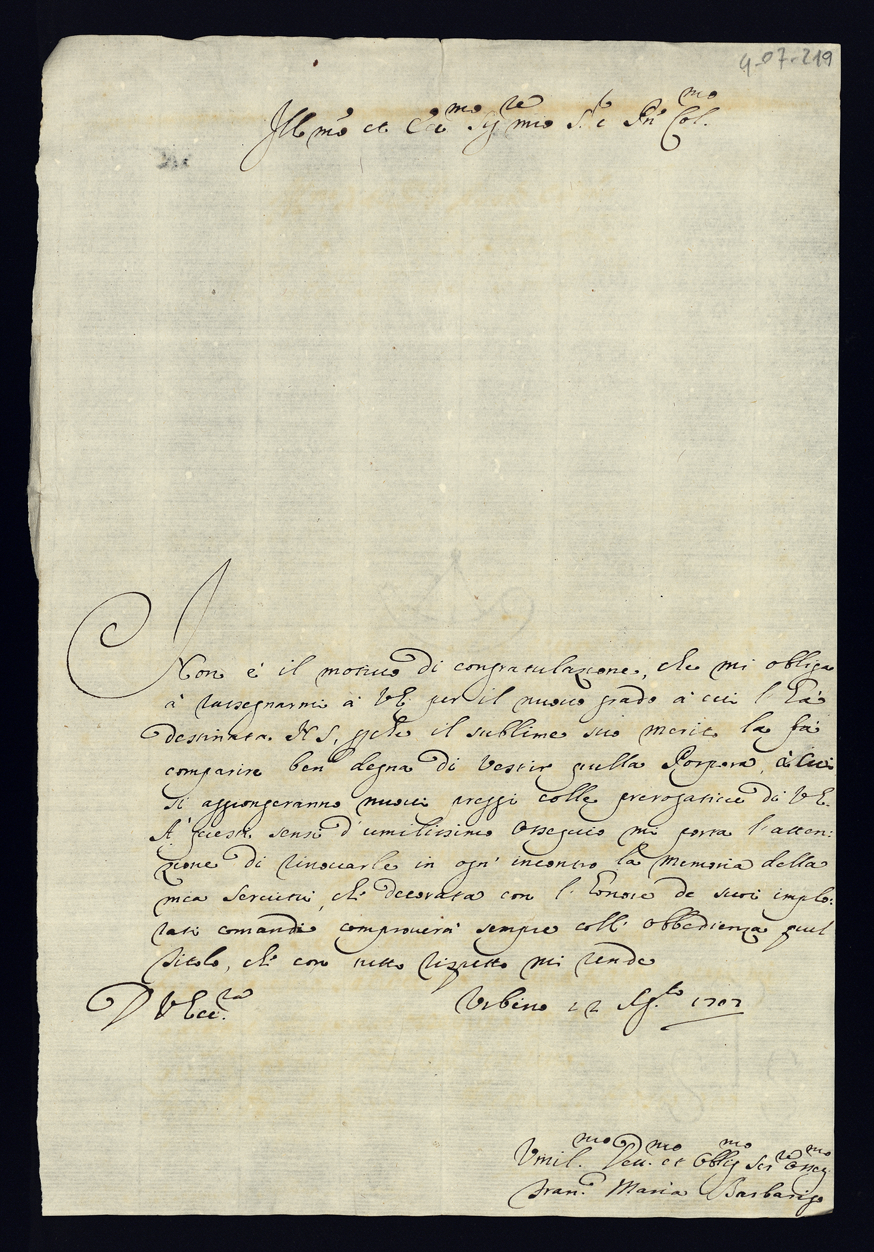 4-07-219
Ill.mo et Ecc.mo Sig.re mio S.r e Pn' Col.mo
Non è il motivo di congratulazione, che mi obliga
à rassegnarmi à V.E. per il nuovo grado à cui l'hà
destinata N.S. che il sublime suo merito la fà
comparire ben degna di vestir quella Porpora, à cui
si aggiongeranno nuovi preggi colle prerogative di V.E.
A' questi sensi d'umilissimo ossequio mi porta l'atten:
zione di rinovarle in ogn' incontro la memoria della
mia servitù, che decorata con l'honore de suoi implo:
rati comandi comproverà sempre coll' obbedienza quel
titolo, che con tutto rispetto mi rende
D V Ecc.za Urbino 12 Ag.to 1707
Umil.mo Dev.mo et Oblig.mo Ser.re Osseq.mo
Fran.o Maria Barbarigo